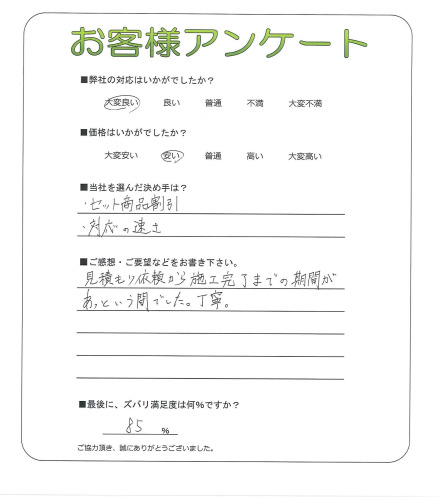 お客様アンケート
■弊社の対応はいかがでしたか？
大変良い 良い 普通 不満 大変不満
■価格はいかがでしたか？
大変安い 安い 普通 高い 大変高い
■当社を選んだ決め手は？
・セット商品割引
・対応の速さ
■ご感想・ご要望などをお書き下さい。
見積もり依頼から施工完了までの期間が
あっという間でした。丁寧。
■最後に、ズバリ満足度は何％ですか？
85 ％
ご協力頂き、誠にありがとうございました。